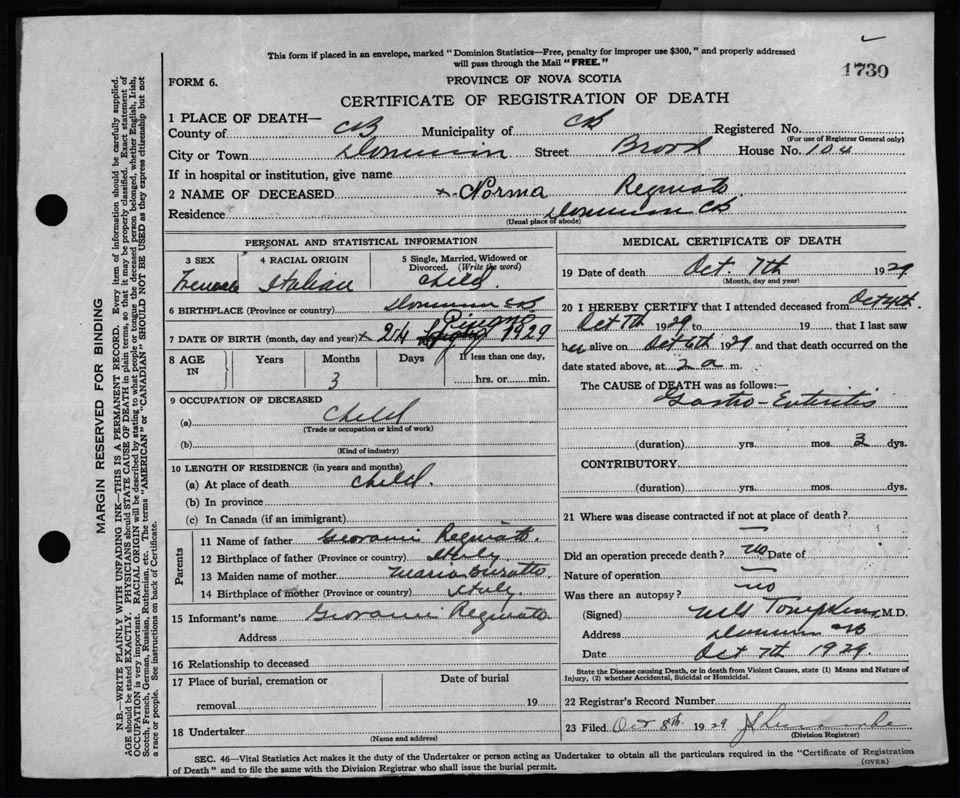 This form if placed in an envelope, marked "Dominion Statistics—Free, penalty for improper use $300," and properly addressed
will pass through the Mail "FREE."
1730
FORM 6.
PROVINCE OF NOVA SCOTIA
CERTIFICATE OF REGISTRATION OF DEATH
1 PLACE OF DEATH—
County of CB Municipality of CB Registered No.
(For use of Registrar General only)
City or Town Dominion Street Brook House No. 104
If in hospital or institution, give name
2 NAME OF DECEASED x Norma Reginato
Residence Dominion CB
(Usual place of abode)
PERSONAL AND STATISTICAL INFORMATION
3 SEX 4 RACIAL ORIGIN 5 Single, Married, Widowed or Divorced. (Write the word)
Female Italian Child.
6 BIRTHPLACE (Province or country) Dominion CB
7 DATE OF BIRTH (month, day and year) x 24 1929
8 AGE IN Years Months Days If less than one day,
3 hrs. or min.
9 OCCUPATION OF DECEASED
(a) Child
(Trade or occupation or kind of work)
(b)
(Kind of industry)
10 LENGTH OF RESIDENCE (in years and months)
(a) At place of death Child.
(b) In province
(c) In Canada (if an immigrant)
Parents
11 Name of father Giovanni Reginato.
12 Birthplace of father (Province or country) Italy
13 Maiden name of mother Maria
14 Birthplace of mother (Province or country) Italy.
15 Informant's name Giovanni Reginato
Address
16 Relationship to deceased
17 Place of burial, cremation or Date of burial
removal 19
18 Undertaker
(Name and address)
MEDICAL CERTIFICATE OF DEATH
19 Date of death Oct. 7th 1929
(Month, day and year)
20 I HEREBY CERTIFY that I attended deceased from Oct 4th.
Oct 7th 1929 to 19 that I last saw
her alive on Oct 6th 1929 and that death occurred on the
date stated above, at 2 a m.
The CAUSE of DEATH was as follows:—
Gastro-Enteritis
(duration) yrs. mos. 3 dys.
CONTRIBUTORY
(duration) yrs. mos. dys.
21 Where was disease contracted if not at place of death?
—
Did an operation precede death? no Date of
Nature of operation —
Was there an autopsy? no
(Signed) Tompkins, M.D.
Address Dominion CB
Date Oct 7th 1929.
State the Disease causing Death, or in death from Violent Causes, state (1) Means and Nature of
Injury, (2) whether Accidental, Suicidal or Homicidal.
22 Registrar's Record Number
23 Filed Oct 8th. 1929
(Division Registrar)
SEC. 46—Vital Statistics Act makes it the duty of the Undertaker or person acting as Undertaker to obtain all the particulars required in the "Certificate of Registration
of Death" and to file the same with the Division Registrar who shall issue the burial permit.
(OVER)
MARGIN RESERVED FOR BINDING
N.B.—WRITE PLAINLY WITH UNFADING INK—THIS IS A PERMANENT RECORD. Every item of information should be carefully supplied.
AGE should be stated EXACTLY. PHYSICIANS should STATE CAUSE OF DEATH in plain terms, so that it may be properly classified. Exact statement of
OCCUPATION is very important. RACIAL ORIGIN will be described by stating to what people or tongue the deceased person belonged, whether English, Irish,
Scotch, French, German, Russian, Ruthenian, etc. The terms "AMERICAN" or "CANADIAN" SHOULD NOT BE USED as they express citizenship but not
a race or people. See instructions on back of Certificate.